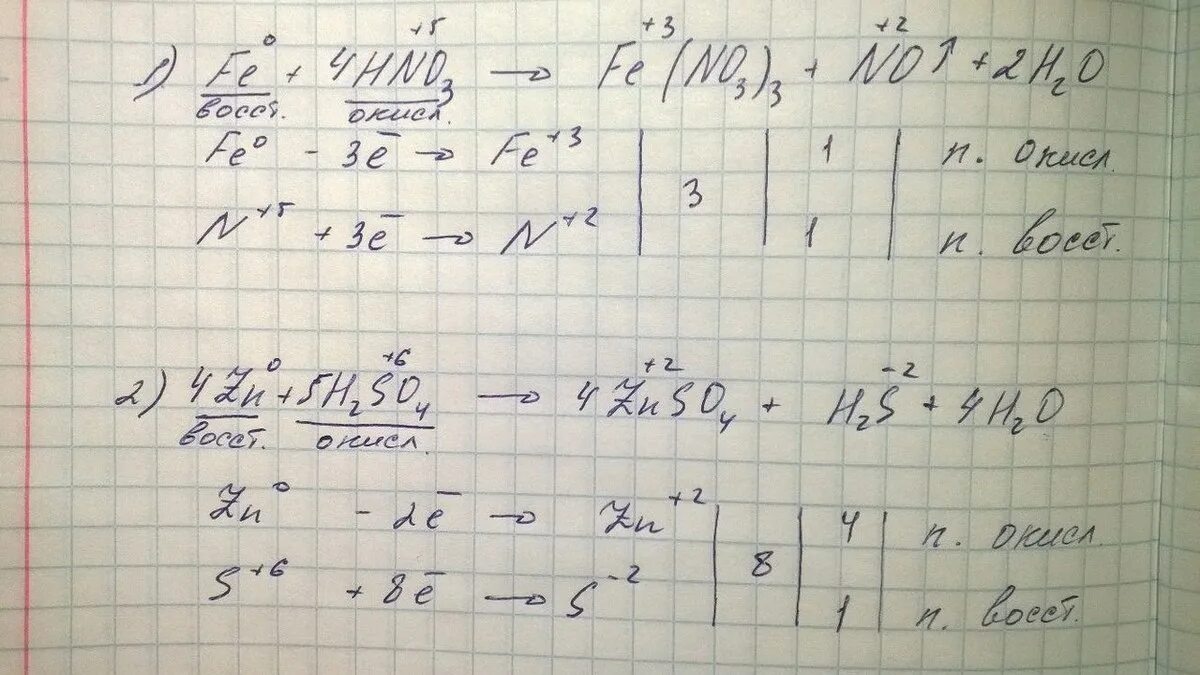 1) Fe⁰ + 4HN⁺⁵O₃ → Fe⁺³(NO₃)₃ + N⁺²O↑ + 2H₂O
восст. окисл.
Fe⁰ - 3e̅ → Fe⁺³ | | 1 | п. окисл.
3
N⁺⁵ + 3e̅ → N⁺² | | 1 | п. восст.
2) 4Zn⁰ + 5H₂S⁺⁶O₄ → 4Zn⁺²SO₄ + H₂S⁻² + 4H₂O
восст. окисл.
Zn⁰ - 2e̅ → Zn⁺² | | 4 | п. окисл.
8
S⁺⁶ + 8e̅ → S⁻² | | 1 | п. восст.